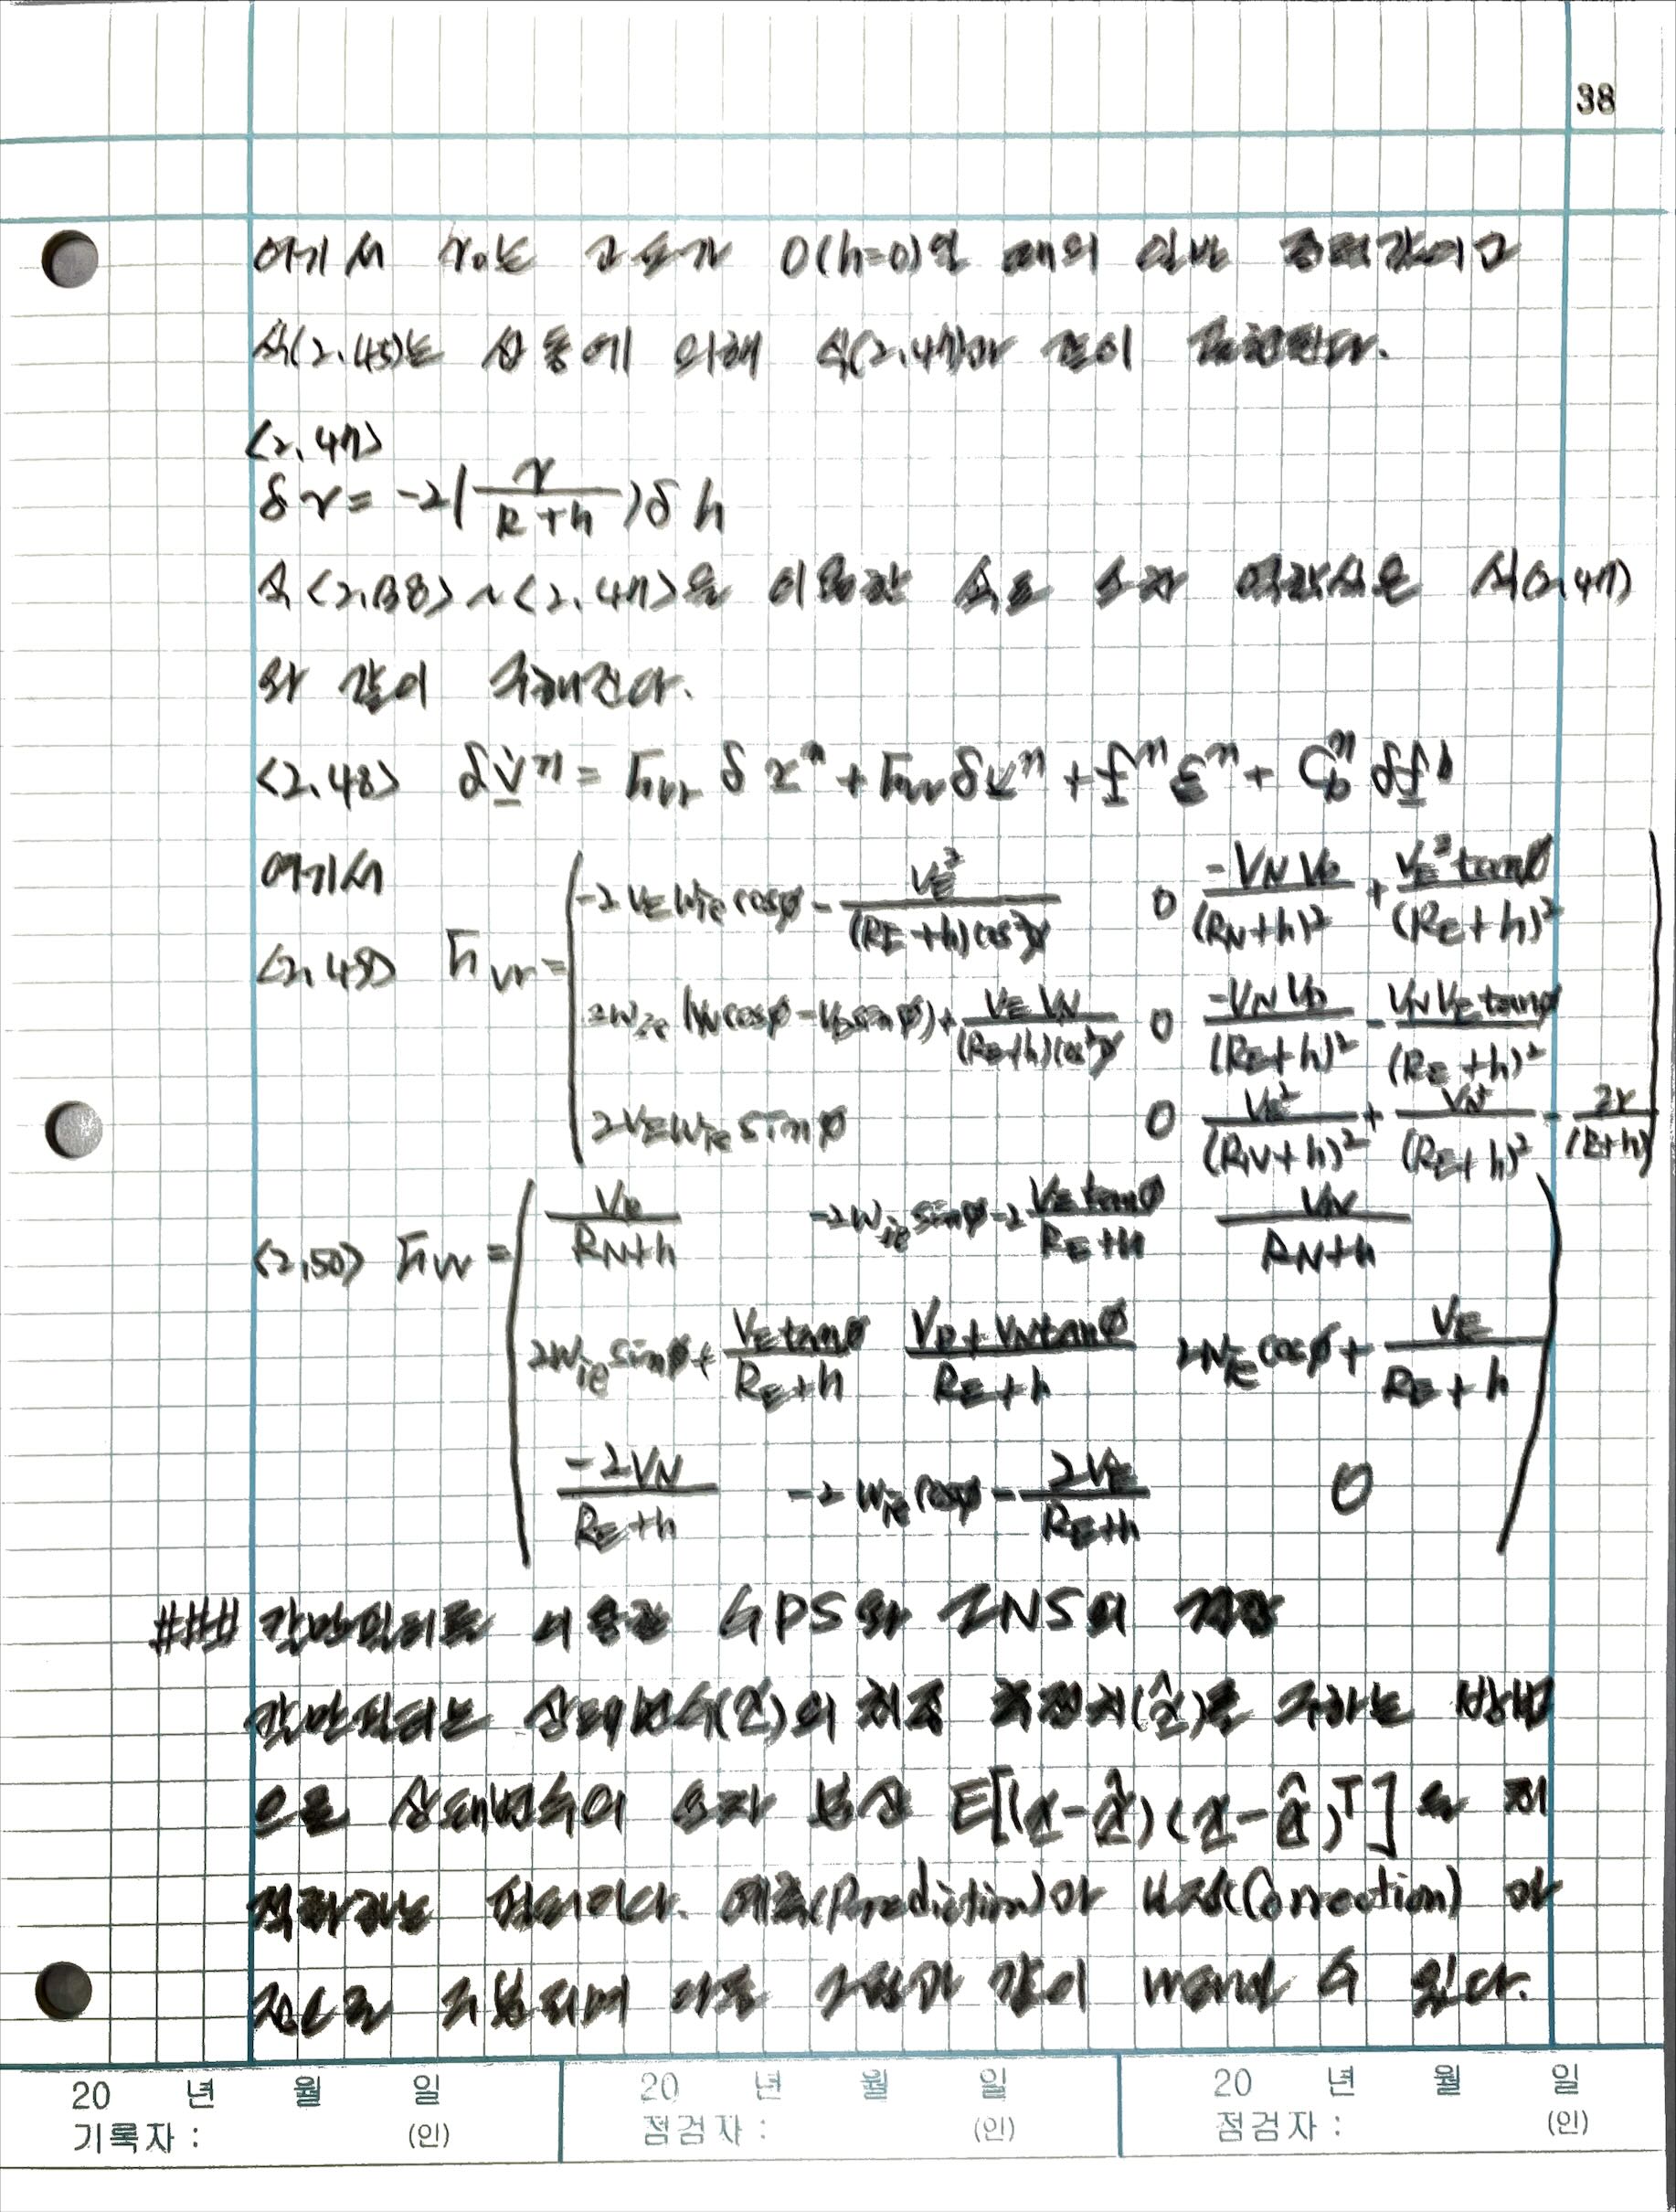 38
여기서 γ₀는 고도가 0(h=0)일 때의 일반 중력값이고
식(2.45)는 섭동에 의해 식(2.47)과 같이 표현된다.
<2.47>
δγ = -2(γ/(R+h))δh
식 <2.38> ~ <2.47>을 이용한 속도 오차 방정식은 식(2.47)
와 같이 구해진다.
<2.48> δv̇ⁿ = Fvr δrⁿ + Fvv δvⁿ + fⁿ εⁿ + Cbⁿ δfᵇ
여기서
-2VE Wie cosφ - VE²/((RE+h)cos²φ) 0 -VN VD/(RN+h)² + VE² tanφ/(RE+h)²
<2.49> Fvr =
2Wie(VN cosφ - VD sinφ) + VE VN/((RE+h)cos²φ) 0 -VN VD/(RE+h)² - VN VE tanφ/(RE+h)²
2VE Wie sinφ 0 VE²/(RN+h)² + VN²/(RE+h)² - 2γ/(R+h)
VD/(RN+h) -2Wie sinφ - 2 VE tanφ/(RE+h) VN/(RN+h)
<2.50> Fvv =
2Wie sinφ + VE tanφ/(RE+h) (VD + VN tanφ)/(RE+h) 2Wie cosφ + VE/(RE+h)
-2VN/(RE+h) -2Wie cosφ - 2VE/(RE+h) 0
### 칼만필터를 이용한 GPS와 INS의 결합
칼만필터는 상태변수(x)의 최적 추정치(x̂)를 구하는 방법
으로 상태변수의 오차 분산 E[(x-x̂)(x-x̂)ᵀ]을 최
적화하는 필터이다. 예측(Prediction)과 보정(Correction) 과
정으로 구분되며 다음 그림과 같이 나타낼 수 있다.
20 년 월 일 20 년 월 일 20 년 월 일
기록자 : (인) 점검자 : (인) 점검자 : (인)